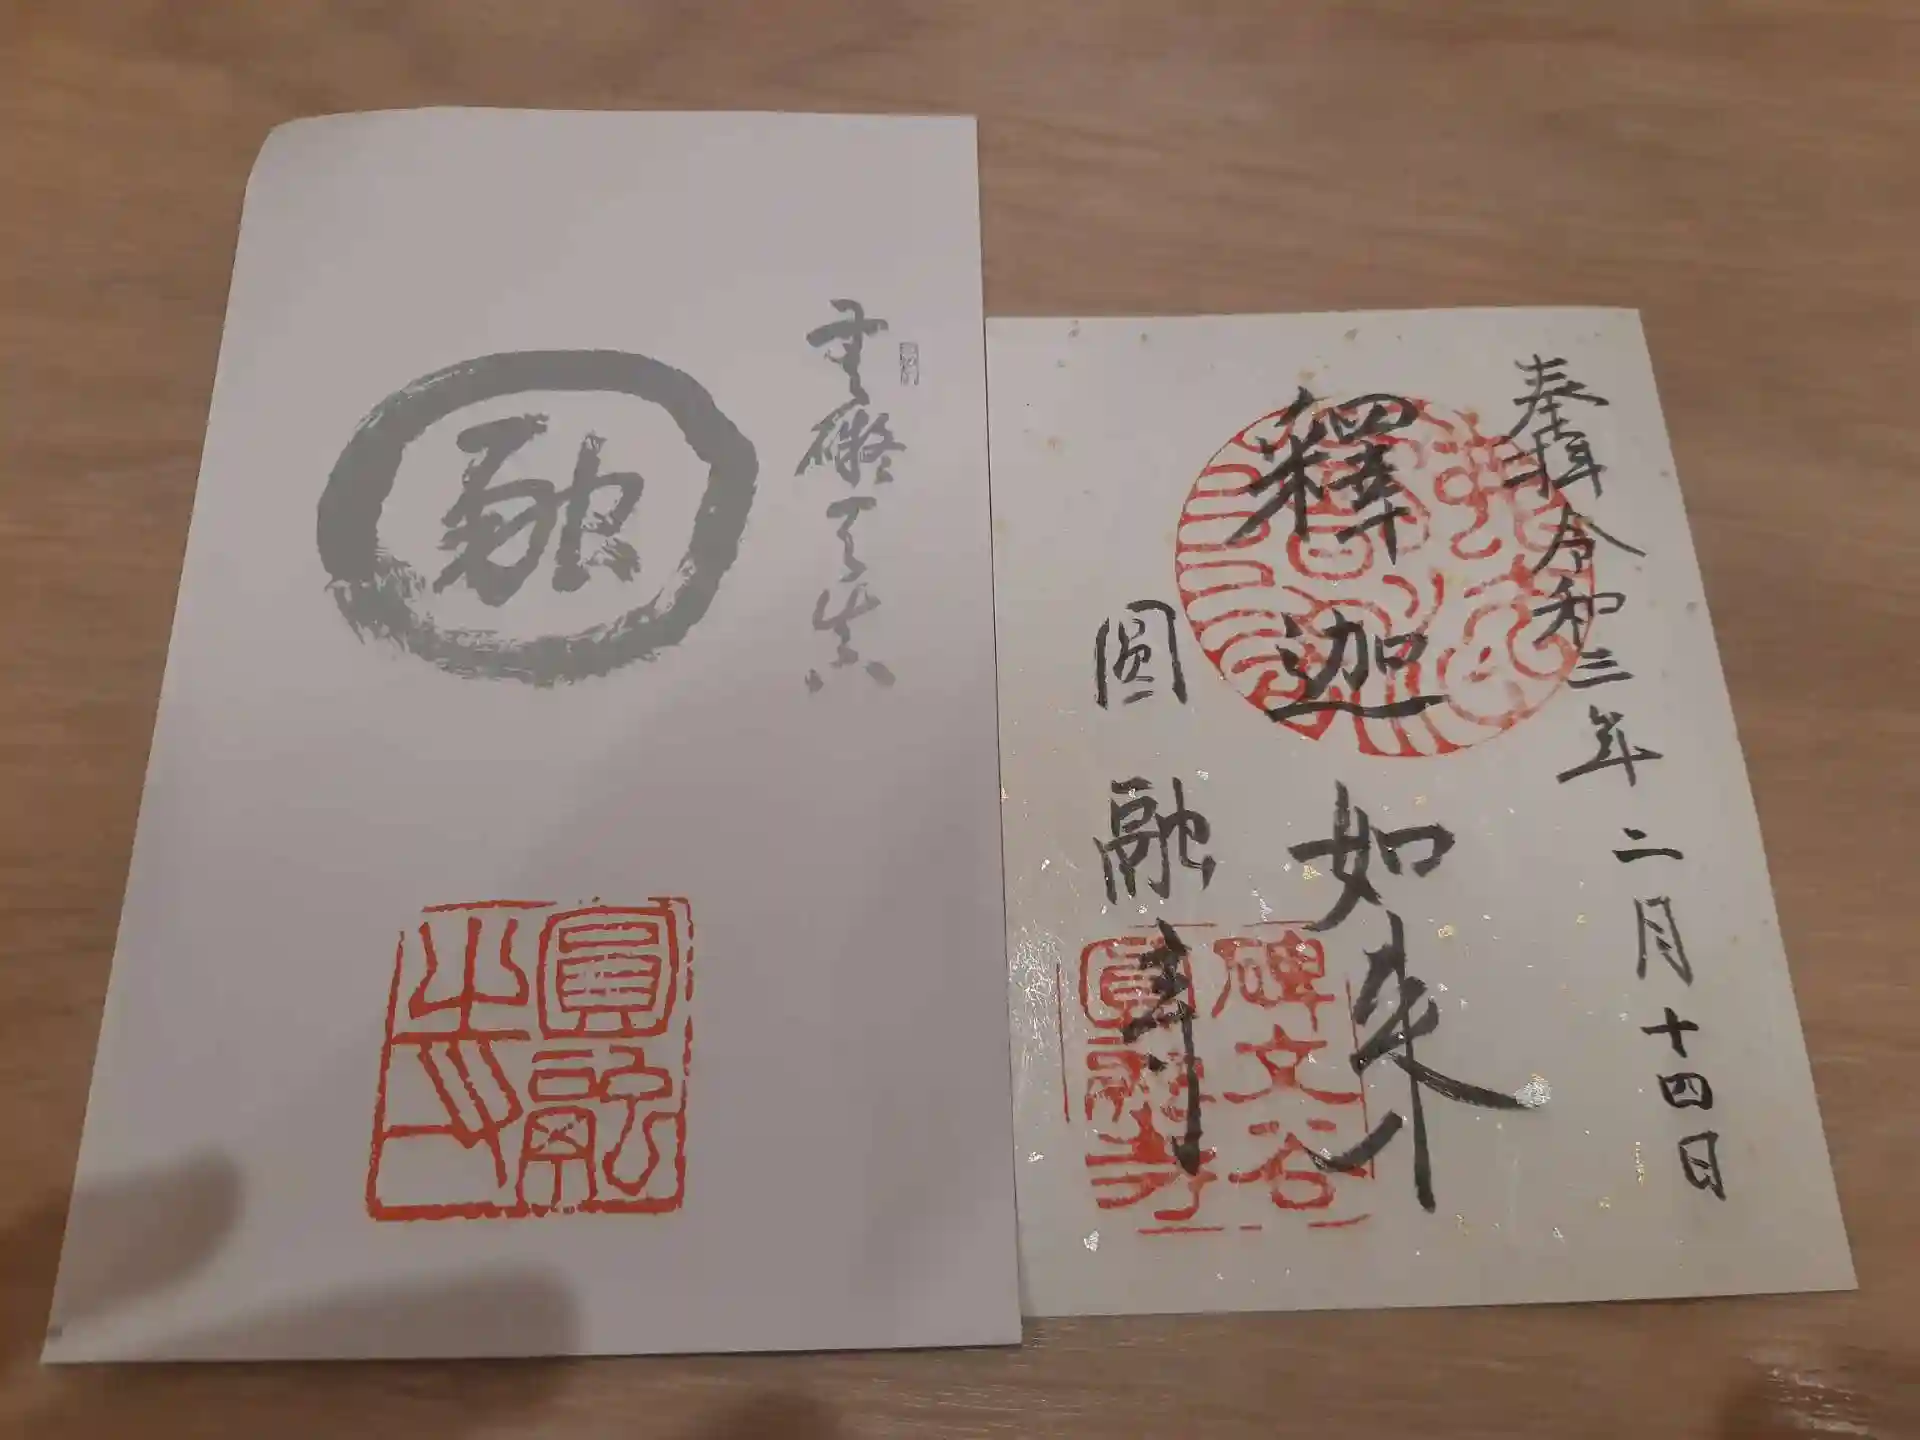 奉拝 令和三年 二月十四日
釋迦如来
圓融寺
碑文谷
圓融寺
無礙
融
圓融
之印